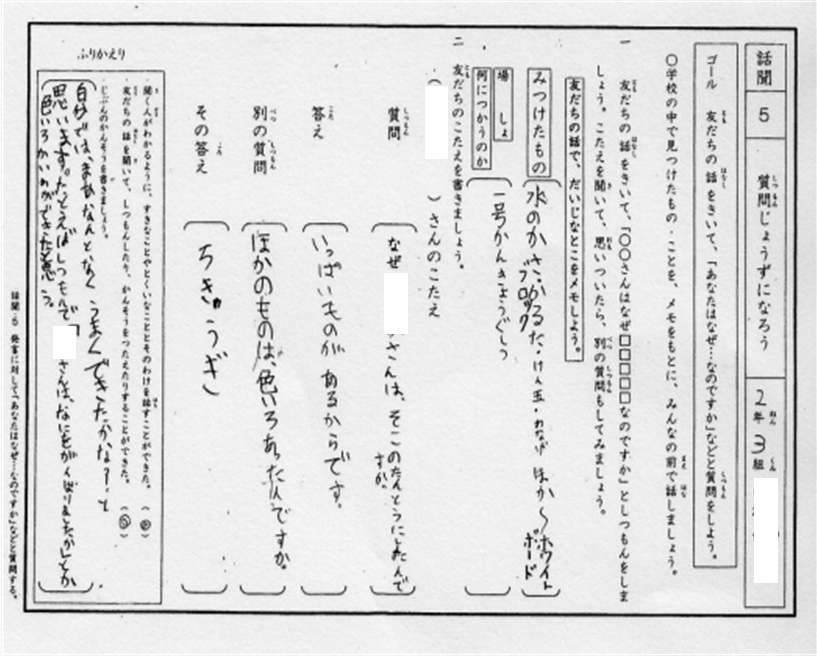 話聞 5 質問じょうずになろう 2年3組
ゴール 友だちの話をきいて、「あなたはなぜ…なのですか」などと質問をしよう。
○学校の中で見つけたもの・ことを、メモをもとに、みんなの前で話しましょう。
一 友だちの話をきいて、「○○さんはなぜ□□□□□なのですか」としつもんをしま
しょう。こたえを聞いて、思いついたら、別の質問もしてみましょう。
友だちの話で、だいじなとこをメモしよう。
みつけたもの
水のかさ・かるた・けん玉・
ブロック
ほか〜ホワイト
ボード
場しょ
何につかうのか
一号かんきょうぐしつ
二 友だちのこたえを書きましょう。
( )さんのこたえ
質問 なぜ さんは、そこのたんとうにしたんで
すか。
答え いっぱいものがあるからです。
別の質問 ほかのものは、色いろあったんですか。
その答え ちきゅうぎ
ふりかえり
・聞く人がわかるように、すきなことやとくいなこととそのわけを話すことができた。(◎)
・友だちの話を聞いて、しつもんしたり、かんそうをつたえたりすることができた。(◎)
・じぶんのかんそうを書きましょう。
自分では、まあなんとなくうまくできたかな?と
思います。たとえばしつもんで「 さんは、なにをがんばりましたか」とか
色いろかいわができたと思う。
話聞・5 発言に対して「あなたはなぜ…なのですか」などと質問する。